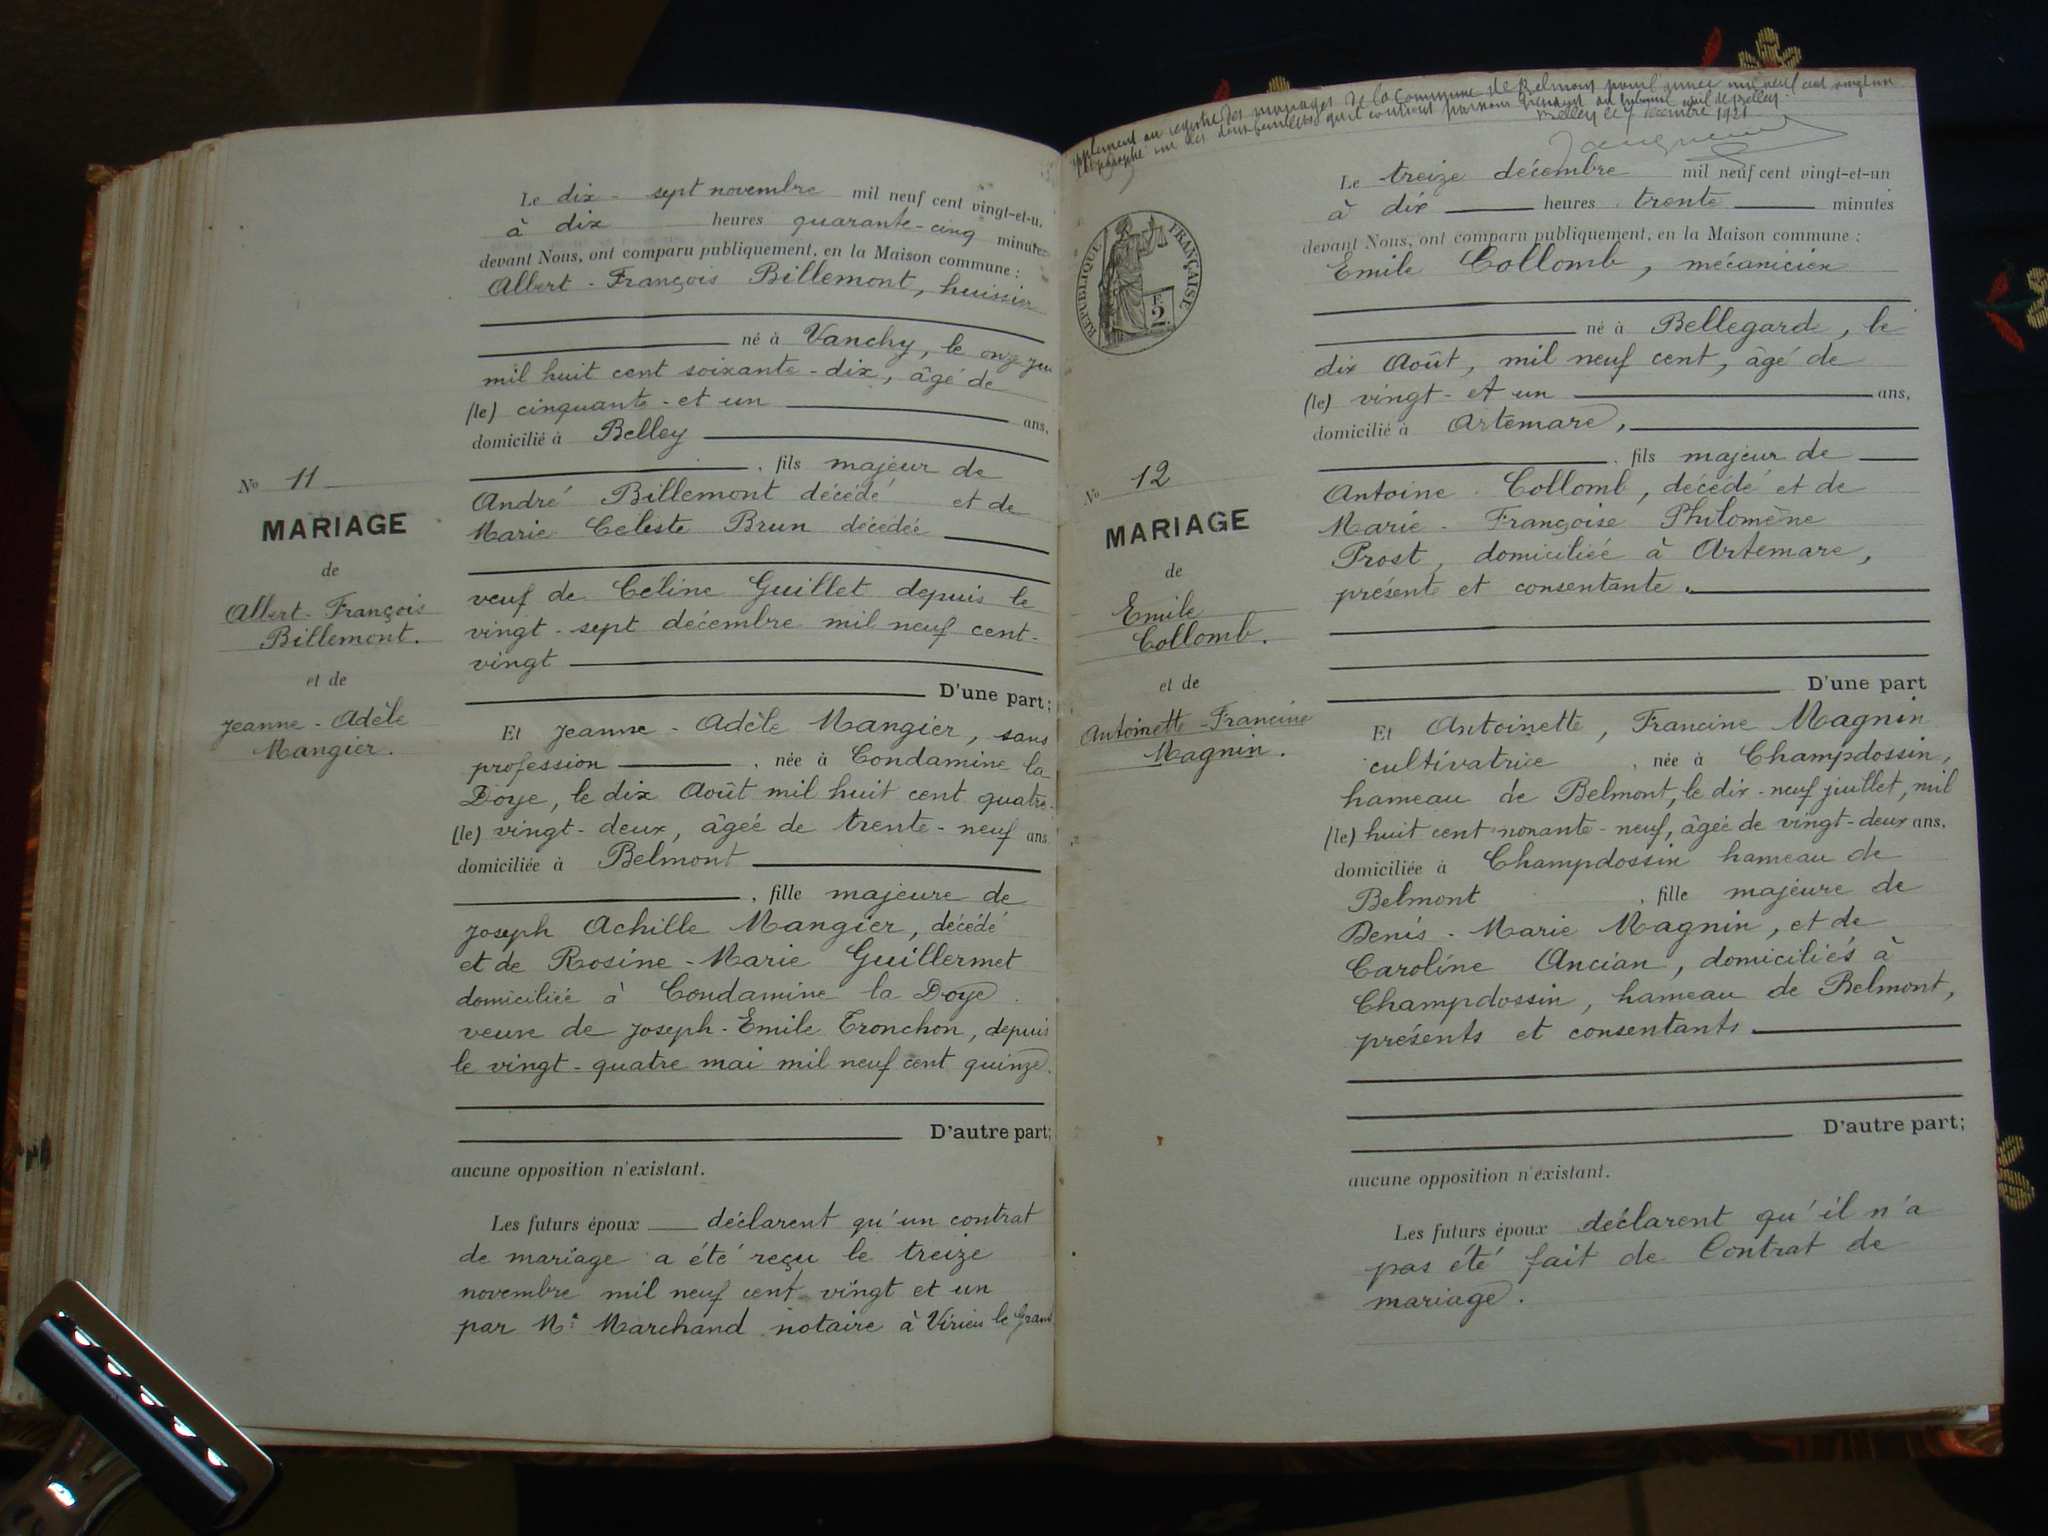 Le dix-sept novembre mil neuf cent vingt-et-u.
à dix heures quarante-cinq minutes
devant Nous, ont comparu publiquement, en la Maison commune :
Albert-François Billemont, huissier
né à Vanchy, le onze
mil huit cent soixante-dix, âgé de
(le) cinquante-et un ans.
domicilié à Belley
, fils majeur de
André Billemont décédé et de
Marie Celeste Brun décédée
veuf de Celine Guillet depuis le
vingt-sept décembre mil neuf cent-
vingt
D'une part;
Et Jeanne-Adèle Mangier, sans
profession, née à Condamine la
Doye, le dix Août mil huit cent quatre-
(le) vingt-deux, âgée de trente-neuf ans
domiciliée à Belmont
, fille majeure de
Joseph Achille Mangier, décédé
et de Rosine-Marie Guillermet
domiciliée à Condamine la Doye
veuve de Joseph-Emile Tronchon, depuis
le vingt-quatre mai mil neuf cent quinze.
D'autre part;
aucune opposition n'existant.
Les futurs époux déclarent qu'un contrat
de mariage a été reçu le treize
novembre mil neuf cent vingt et un
par Me Marchand notaire à Virieu le Grand
No 11
MARIAGE
de
Albert-François
Billemont.
et de
Jeanne-Adèle
Mangier.
registre des mariages de la commune de Belmont pour l'année mil neuf cent vingt un
Belley le 7 décembre 1921
Le treize décembre mil neuf cent vingt-et-un
à dix heures trente minutes
devant Nous, ont comparu publiquement, en la Maison commune :
Emile Collomb, mécanicien
né à Bellegarde, le
dix Août, mil neuf cent, âgé de
(le) vingt-et un ans,
domicilié à Artemare,
, fils majeur de
Antoine Collomb, décédé et de
Marie-Françoise Philomène
Prost, domiciliée à Artemare,
présente et consentante.
D'une part
Et Antoinette, Francine Magnin
cultivatrice, née à Champdossin,
hameau de Belmont, le dix-neuf juillet, mil
(le) huit cent nonante-neuf, âgée de vingt-deux ans.
domiciliée à Champdossin hameau de
Belmont, fille majeure de
Denis-Marie Magnin, et de
Caroline Ancian, domiciliés à
Champdossin, hameau de Belmont,
présents et consentants
D'autre part;
aucune opposition n'existant.
Les futurs époux déclarent qu'il n'a
pas été fait de Contrat de
mariage.
RÉPUBLIQUE FRANÇAISE
F.
2.
No 12
MARIAGE
de
Emile
Collomb.
et de
Antoinette-Francine
Magnin.